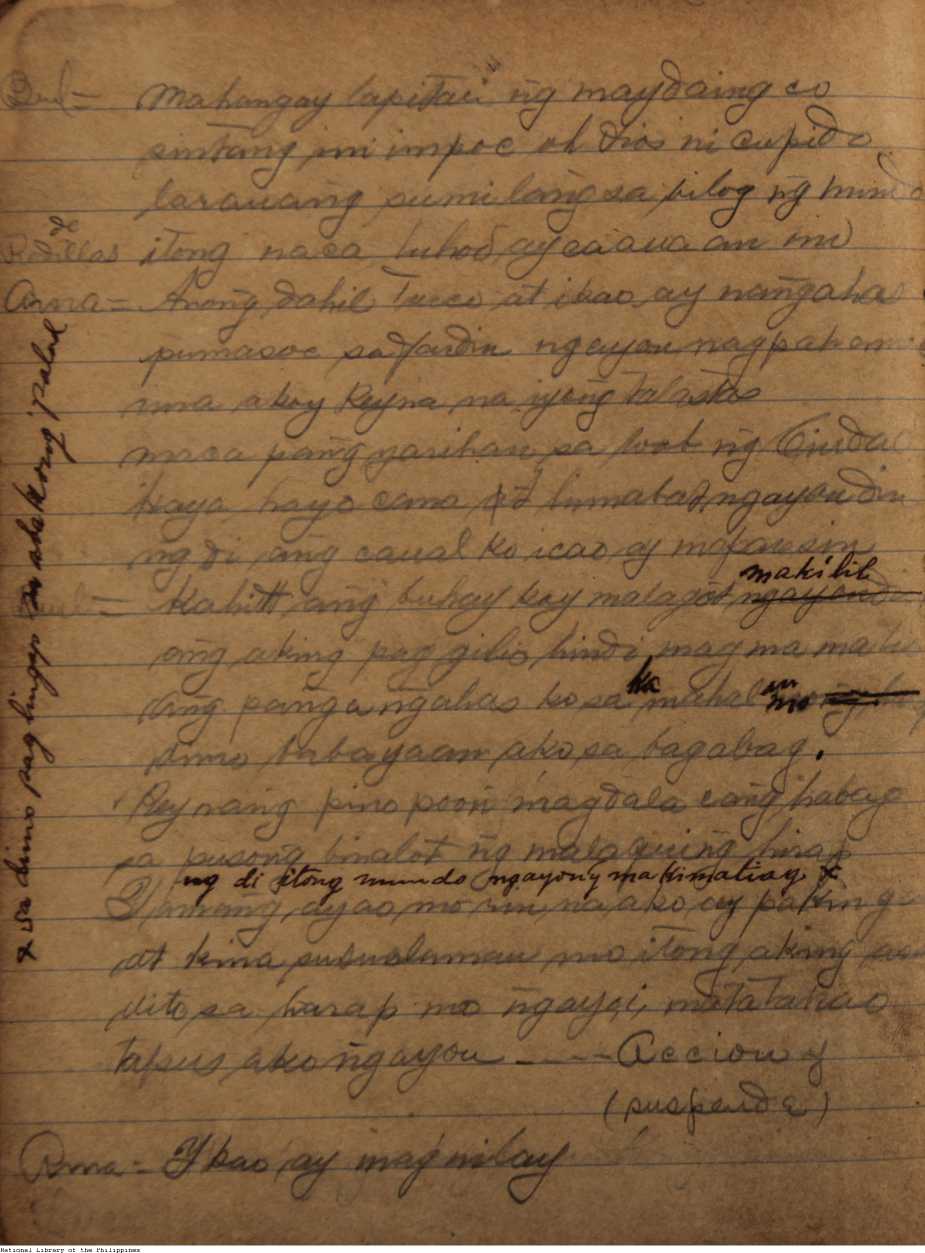 Mahangay lapitan ng maydaing co
sintang ni impoc oh Dios ni Cupido
larauang sumilang sa bilog ng mundo
de
Rodillas itong naca luhod ay caauaan mo
Arna = Anong dahil Turco at ikao ay nangahas
pumasoc sa Jardin ngayon
una akoy Reyna na iyong talastas
sa loob ng Ciudad
kaya hayo cana at lumabas ngayon din
ng di ang caual ko icao ay
makilib
= Kahit ang buhay koy malagot ngayon din
ang aking pag gilio hindi
ka an
ang pangangahas ko sa mahal mo
dimo babayaan ako sa bagabag.
Reynang pino poon magdala cang habag
sa pusong binalot ng malaquing hirap
ng di itong mundo ngayon'y makimatiag x
Yamang ayao mo rin na ako ay
at kina susuclaman mo itong aking
dito sa harap mo ngayoi, matatanao
tapus ako ngayon ---- Accion y
(suspende)
Arna - Ykao ay mag nilay
x sa dimo pag lingap sa akong palad
National Library of the Philippines